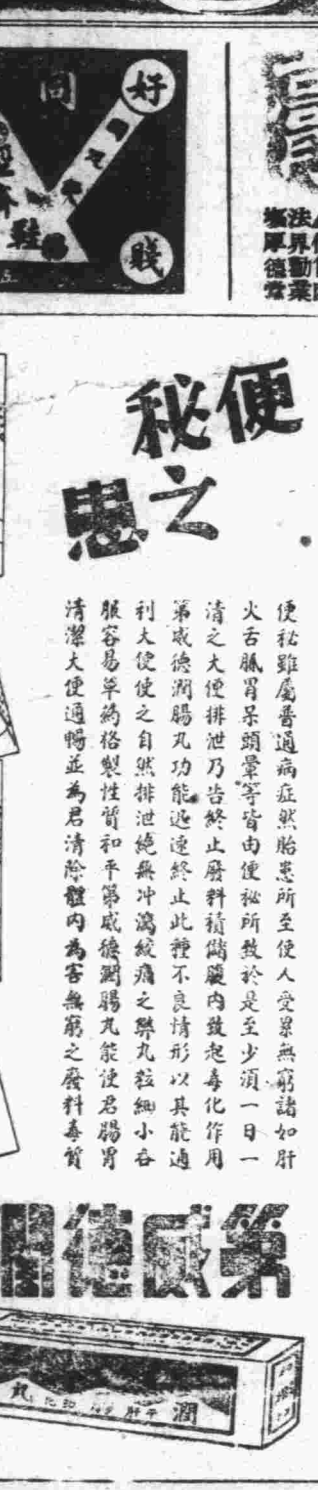 同
好
賤
鞋
法界勸業
德
便秘
之患
便秘雖屬普通病症然胎患所至使人受累無窮諸如肝
火舌膩胃呆頭暈等皆由便秘所致於是至少須一日一
清之大便排泄乃告終止廢料積儲腹内致起毒化作用
第威德潤腸丸功能迅速終止此種不良情形以其能通
利大便使之自然排泄絕無冲瀉絞痛之弊丸粒細小吞
服容易草藥格製性質和平第威德潤腸丸能使君腸胃
清潔大便通暢並為君清除體内為害無窮之廢料毒質
第威德潤
潤
平肝
丸